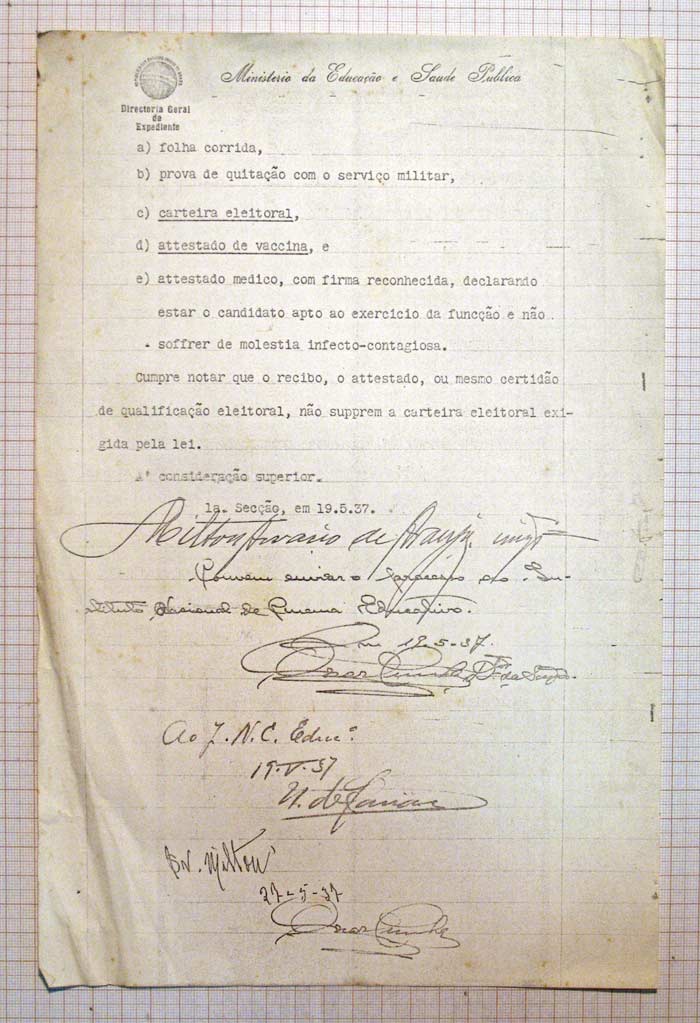 Ministerio da Educação e Saude Publica
Directoria Geral
de
Expediente
a) folha corrida,
b) prova de quitação com o serviço militar,
c) carteira eleitoral,
d) attestado de vaccina, e
e) attestado medico, com firma reconhecida, declarando
estar o candidato apto ao exercicio da funcção e não
soffrer de molestia infecto-contagiosa.
Cumpre notar que o recibo, o attestado, ou mesmo certidão
de qualificação eleitoral, não supprem a carteira eleitoral exi-
gida pela lei.
A' consideração superior.
1a. Secção, em 19.5.37.
Milton de Araujo
Convem enviar o processo ao Ins-
tituto Nacional de Cinema Educativo.
Em 19-5-37.
Oscar Cunha, Dor da Secção
Ao I. N. C. Educo.
19-V-37
Sr. Milton
27-5-37
Oscar Cunha